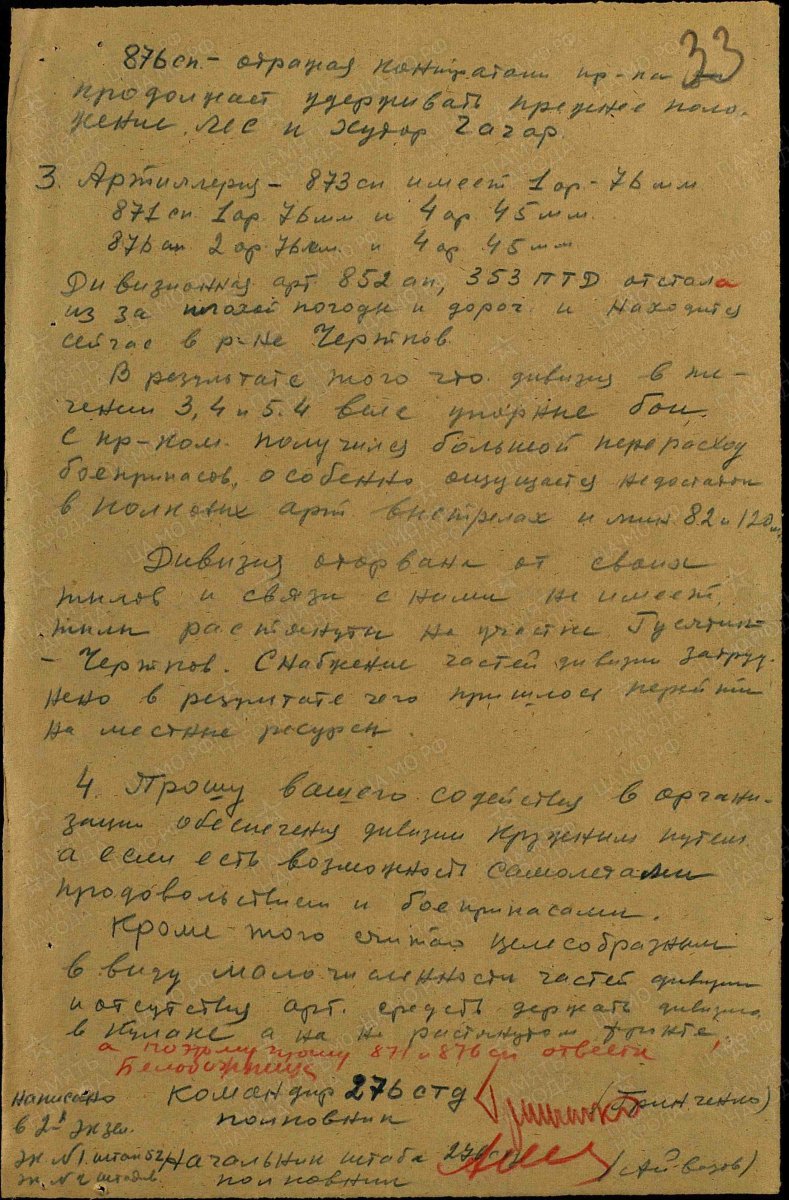 33
876 сп - отражая контратаки пр-ка
продолжает удерживать прежнее поло-
жение лес и хутор Гагар.
3. Артиллерия - 873 сп имеет 1 ор - 76 мм
871 сп 1 ор 76 мм и 4 ор 45 мм.
876 сп 2 ор 76 мм. и 4 ор 45 мм
Дивизионная арт 852 ап, 353 ПТД отстала
из за плохой погоды и дорог и находится
сейчас в р-не Чертков.
В результате того что дивизия в те-
чении 3, 4 и 5.4 вела упорные бои
с пр-ком. получился большой перерасход
боеприпасов, особенно ощущается недостаток
в полковых арт выстрелах и мин 82 и 120 мм
Дивизия оторвана от своих
тылов и связи с ними не имеет,
тылы растянуты на участке Гусятин
- Чертков. Снабжение частей дивизии затруд-
нено в результате чего пришлось перейти
на местные ресурсы.
4. Прошу вашего содействия в органи-
зации обеспечения дивизии кружным путем
а если есть возможность самолетами
продовольствием и боеприпасами.
Кроме того считаю целесобразным
в виду малочисленности частей дивизии
и отсутствия арт. средств держать дивизию
в кулаке а на не растянутом фронте,
а потому прошу 871 и 876 сп отвести
Белобожница
Командир 276 стд (Гринченко)
полковник
Начальник штаба 276 (Айвазов)
полковник
Написано
в 2х экз.
эк. N1 штаб 52
эк. N2 штадив